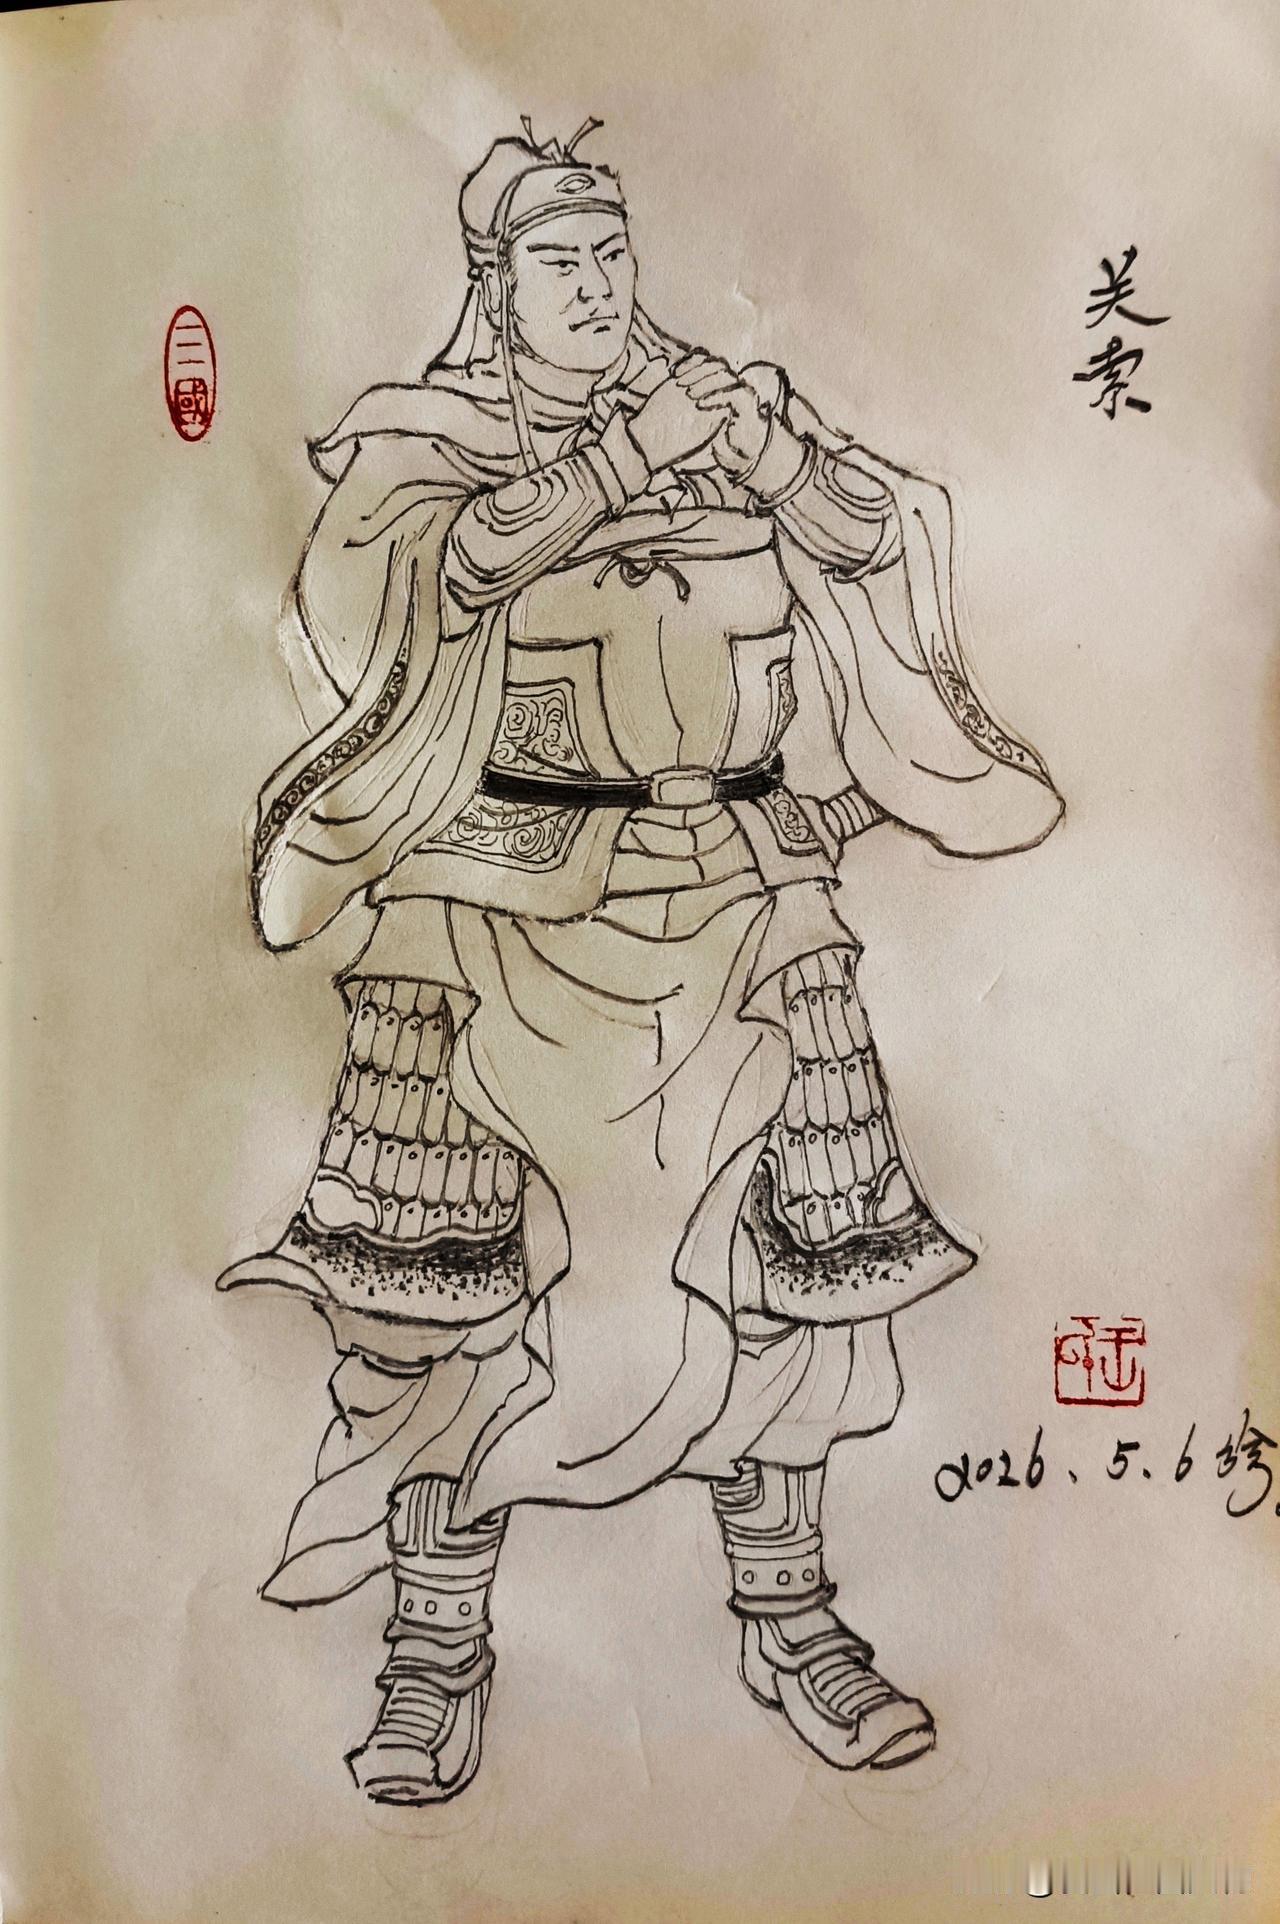 关索
三国
2026.5.6